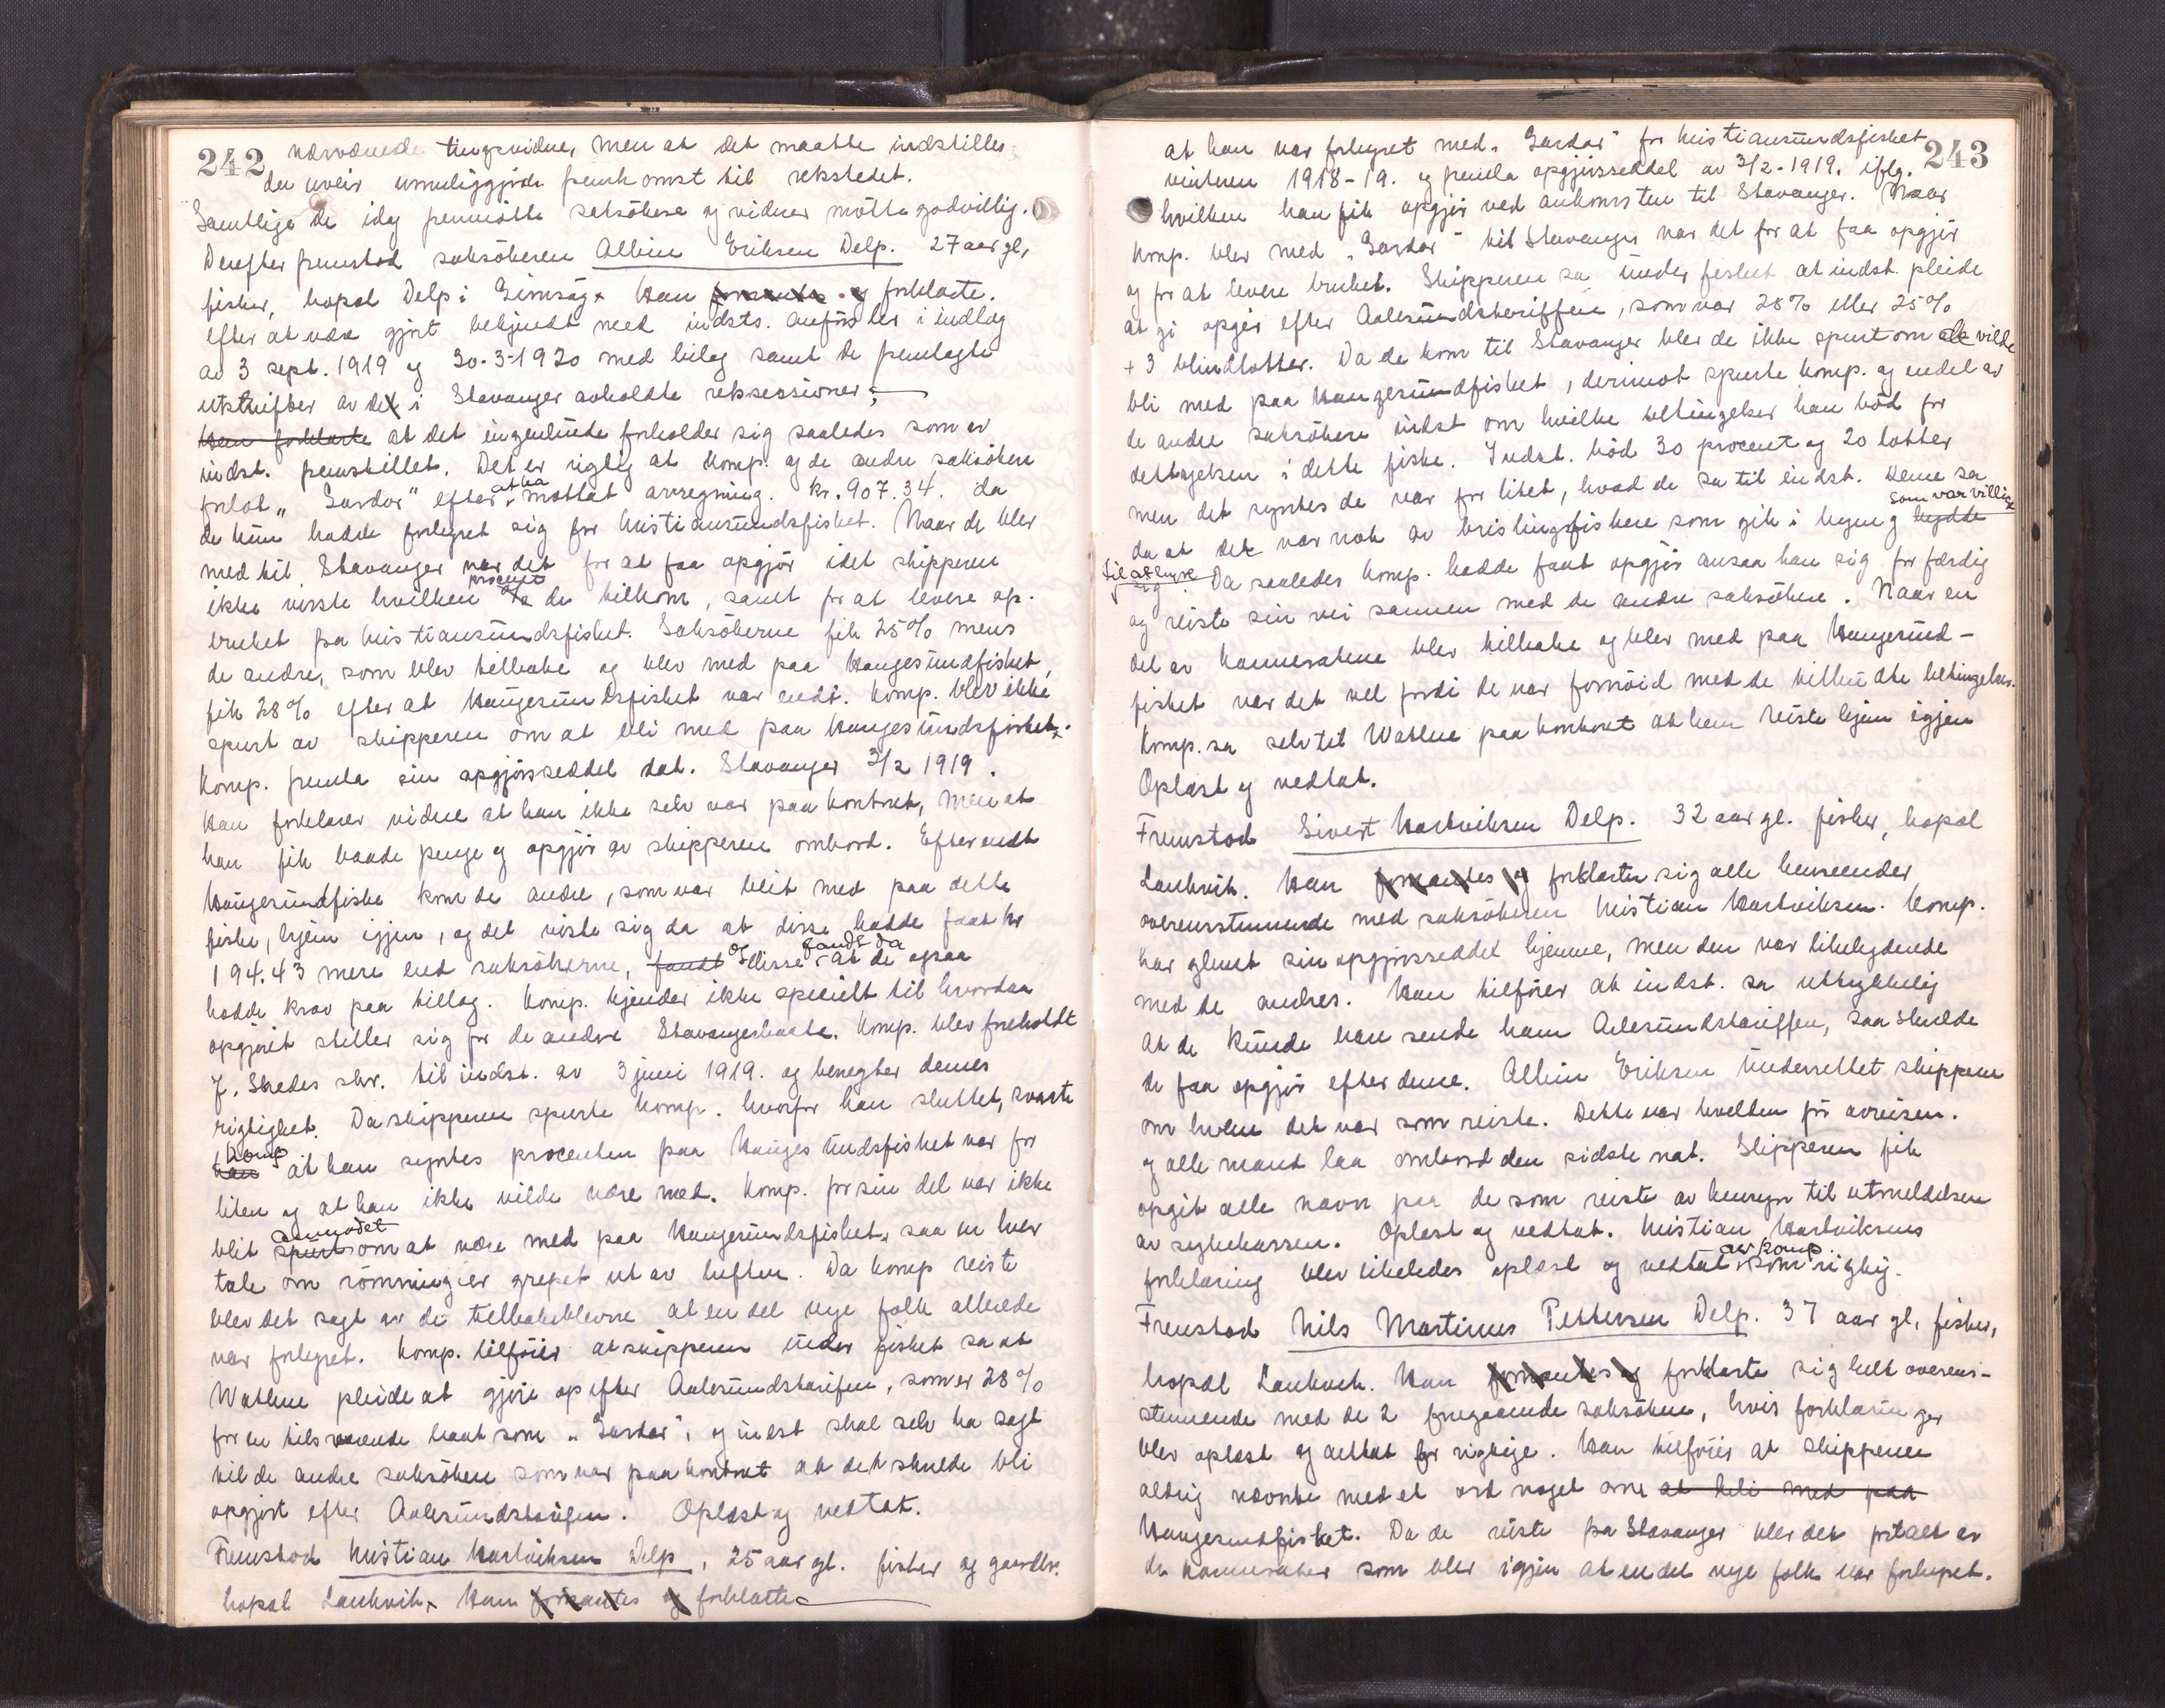 242 nærværende tingsvidne, men at det maatte indstilles
da uveir umuliggjorde fremkomst til retsstedet.
Samtlige de idag fremmötte saksökere og vidner mötte godvillig.
Derefter fremstod saksökeren Albin Eriksen Delp. 27 aar gl,
fisker, bopal Delp i Gimsöy. Han formantes og forklarte.
efter at være gjort bekjendt med indsts. anförsler i indlæg
av 3 sept. 1919 og 30-3-1920 med bilag samt de fremlagte
utskrifter av de i Stavanger avholdte retssessioner:
Han forklarte at det ingenlunde forholder sig saaledes som av
indst. fremstillet. Det er rigtig at komp. og de andre saksökere
forlot „Gardar" efter at ha mottat avregning. kr. 907.34. da
de kun hadde forhyret sig for Kristiansundsfisket. Naar de blev
med til Stavanger var det for at faa opgjör idet skipperen
ikke visste hvilken % procent de tilkom, samt for at levere op.
bruket fra Kristiansundsfisket. Saksökerne fik 25% mens
de andre, som blev tilbake og blev med paa Haugesundfisket,
fik 28% efter at Haugesundsfisket var endt. Komp. blev ikke
spurt av skipperen om at bli med paa Haugesundsfisket.
Komp. fremla sin opgjörsseddel dat. Stavanger 3/2 1919.
Han forklarer videre at han ikke selv var paa kontoret, men at
han fik baade penge og opgjör av skipperen ombord. Efter endt
Haugesundfiske kom de andre, som var blit med paa dette
fiske, hjem igjen, og det viste sig da at disse hadde faat kr
194.43 mere end saksökerne, fandt og disse fandt da at de ogsaa
hadde krav paa tillæg. Komp. kjender ikke specielt til hvordan
opgjöret stiller sig for de andre Stavangerbaate. Komp. blev foreholdt
J. Skedes skr. til indst. av 3 juni 1919. og benegter dennes
rigtighet. Da skipperen spurte komp. hvorfor han sluttet, svarte
han komp at han syntes procenten paa Haugesundsfisket var for
liten og at han ikke vilde være med. Komp. for sin del var ikke
blit spurt anmodet om at være med paa Haugesundsfisket, saa en hver
tale om römning er grepet ut av luften. Da komp reiste
blev det sagt av de tilbakeblevne at en del nye folk allerede
var forhyret. Komp. tilföier at skipperen under fisket sa at
Wathne pleide at gjöre op efter Aalesundstariffen, som er 28%
for en tilsvarende baat som „Gardar", og indst skal selv ha sagt
til de andre saksökere som var paa kontoret at det skulde bli
opgjort efter Aalesundstariffen. Oplæst og vedtat.
Fremstod Kristian Hartviksen Delp, 25 aar gl. fisker og gaardbr.
bopal Laukvik. Han formantes og forklarte
243
at han var forhyret med „Gardar" for Kristiansundsfisket
vinteren 1918-19. og fremla opgjörsseddel av 3/2-1919. iflg.
hvilken han fik opgjör ved ankomsten til Stavanger. Naar
komp. blev med „Gardar" til Stavanger var det for at faa opgjör
og for at levere bruket. Skipperen sa under fisket at indst. pleide
at gi opgjör efter Aalesundstariffen, som var 28% eller 25%
+ 3 blindlotter. Da de kom til Stavanger blev de ikke spurt om de vilde
bli med paa Haugesundfisket, derimot spurte komp. og endel av
de andre saksökere indst om hvilke betingelser han böd for
deltagelsen i dette fiske. Indst. böd 30 procent og 20 lotter
men det syntes de var for litet, hvad de sa til indst. Denne sa
da at det var nok av brislingfiskere som gik i byen og bydde som var villig
til at hyre sig. Da saaledes komp. hadde faat opgjör ansaa han sig for færdig
og reiste sin vei sammen med de andre saksökere. Naar en
del av kameratene blev tilbake og blev med paa Haugesund-
fisket var det vel fordi de var fornöid med de tilbudte betingelser.
Komp. sa selv til Wathne paa kontoret at han reiste hjem igjen
Oplæst og vedtat.
Fremstod Sivert Hartviksen Delp. 32 aar gl. fisker, bopal
Laukvik. Han formantes og forklarte sig alle henseender
overensstemmende med saksökeren Kristian Hartviksen. Komp.
har glemt sin opgjörsseddel hjemme, men den var likelydende
med de andres. Han tilföier at indst. sa uttrykkelig
at de kunde bare sende ham Aalesundstariffen, saa skulde
de faa opgjör efter denne. Albin Eriksen underrettet skipperen
om hvem det var som reiste. Dette var kvelden för avreisen.
og alle mand laa ombord den sidste nat. Skipperen fik
opgit alle navn paa de som reiste av hensyn til utmeldelsen
av sykekassen. Oplæst og vedtat. Kristian Hartviksens
forklaring blev likeledes oplæst og vedtat av komp. som rigtig.
Fremstod Nils Martinus Pettersen Delp. 37 aar gl, fisker,
bopal Laukvik. Han formantes og forklarte sig helt overens-
stemmende med de 2 foregaaende saksökere, hvis forklaringer
blev oplæst og vedtat for rigtige. Han tilföier at skipperen
aldrig nævnte med et ord noget om at bli med paa
Haugesundfisket. Da de reiste fra Stavanger blev det fortalt av
de kamerater som blev igjen at en del nye folk var forhyret.